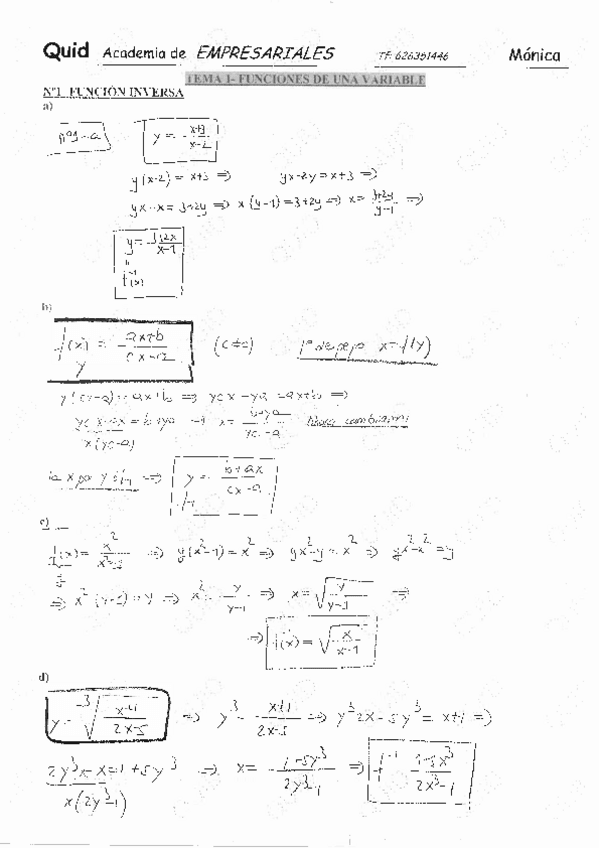 Quid Academia de EMPRESARIALES TF: 626351446 Mónica
TEMA 1- FUNCIONES DE UNA VARIABLE
Nº1 FUNCIÓN INVERSA
a)
y = x+3/x-2
y(x-2) = x+3 => yx-2y = x+3 =>
yx-x = 3+2y => x(y-1) = 3+2y => x = 3+2y/y-1 =>
y = 3+2x/x-1
f⁻¹(x)
b)
f(x) = ax+b/cx-a (cte) 1º despejo x = f(y)
y
y(cx-a) = ax+b => ycx-ya = ax+b =>
ycx-ax = b+ya x = b+ya/yc-a Ahora cambiamos
x(yc-a)
la x por y => y = b+ax/cx-a
c)
f(x) = x²/x²-1 => y(x²-1) = x² => yx²-y = x² => yx²-x² = y
=> x²(y-1) = y => x² = y/y-1 => x = √y/y-1 =>
=> f(x) = √x/x-1
d)
y = ³√x+1/2x-5 => y³ = x+1/2x-5 => y³2x-5y³ = x+1 =>
2y³x-x = 1+5y³ => x = 1+5y³/2y³-1 => f⁻¹ 1+5x³/2x³-1
x(2y³-1)